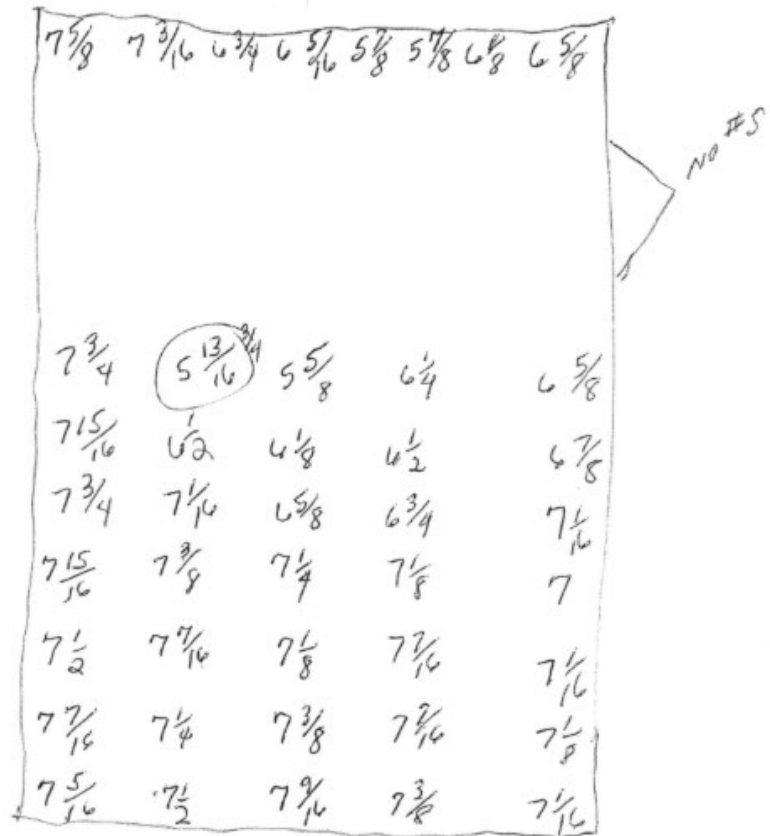 7 5/8 7 3/16 6 3/4 6 5/16 5 7/8 5 7/8 6 1/8 6 5/8
NO #S
7 3/4 5 13/16 3/4 5 5/8 6 1/4 6 5/8
7 15/16 6 1/2 6 1/8 6 1/2 6 7/8
7 3/4 7 1/16 6 5/8 6 3/4 7 1/16
7 15/16 7 3/8 7 1/4 7 1/8 7
7 1/2 7 7/16 7 1/8 7 7/16 7 1/16
7 7/16 7 1/4 7 3/8 7 7/16 7 1/8
7 5/16 7 1/2 7 9/16 7 3/8 7 1/16